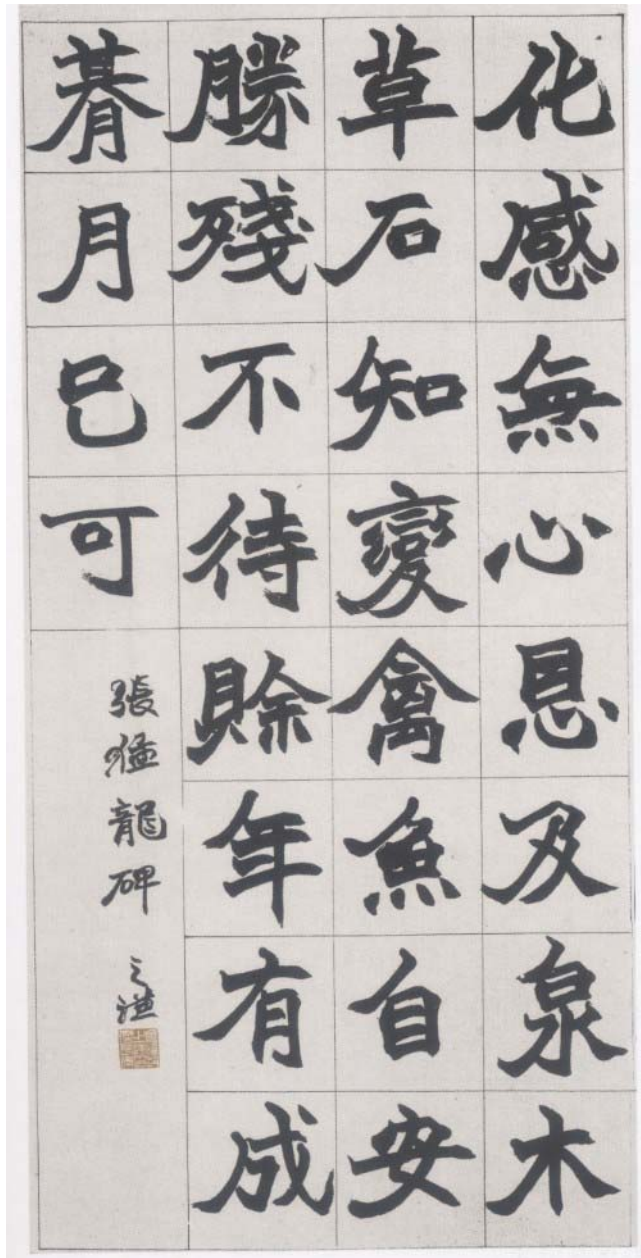 化感無心恩及泉木
草石知變禽魚自安
勝殘不待賒年有成
朞月已可
張猛龍碑 之謙